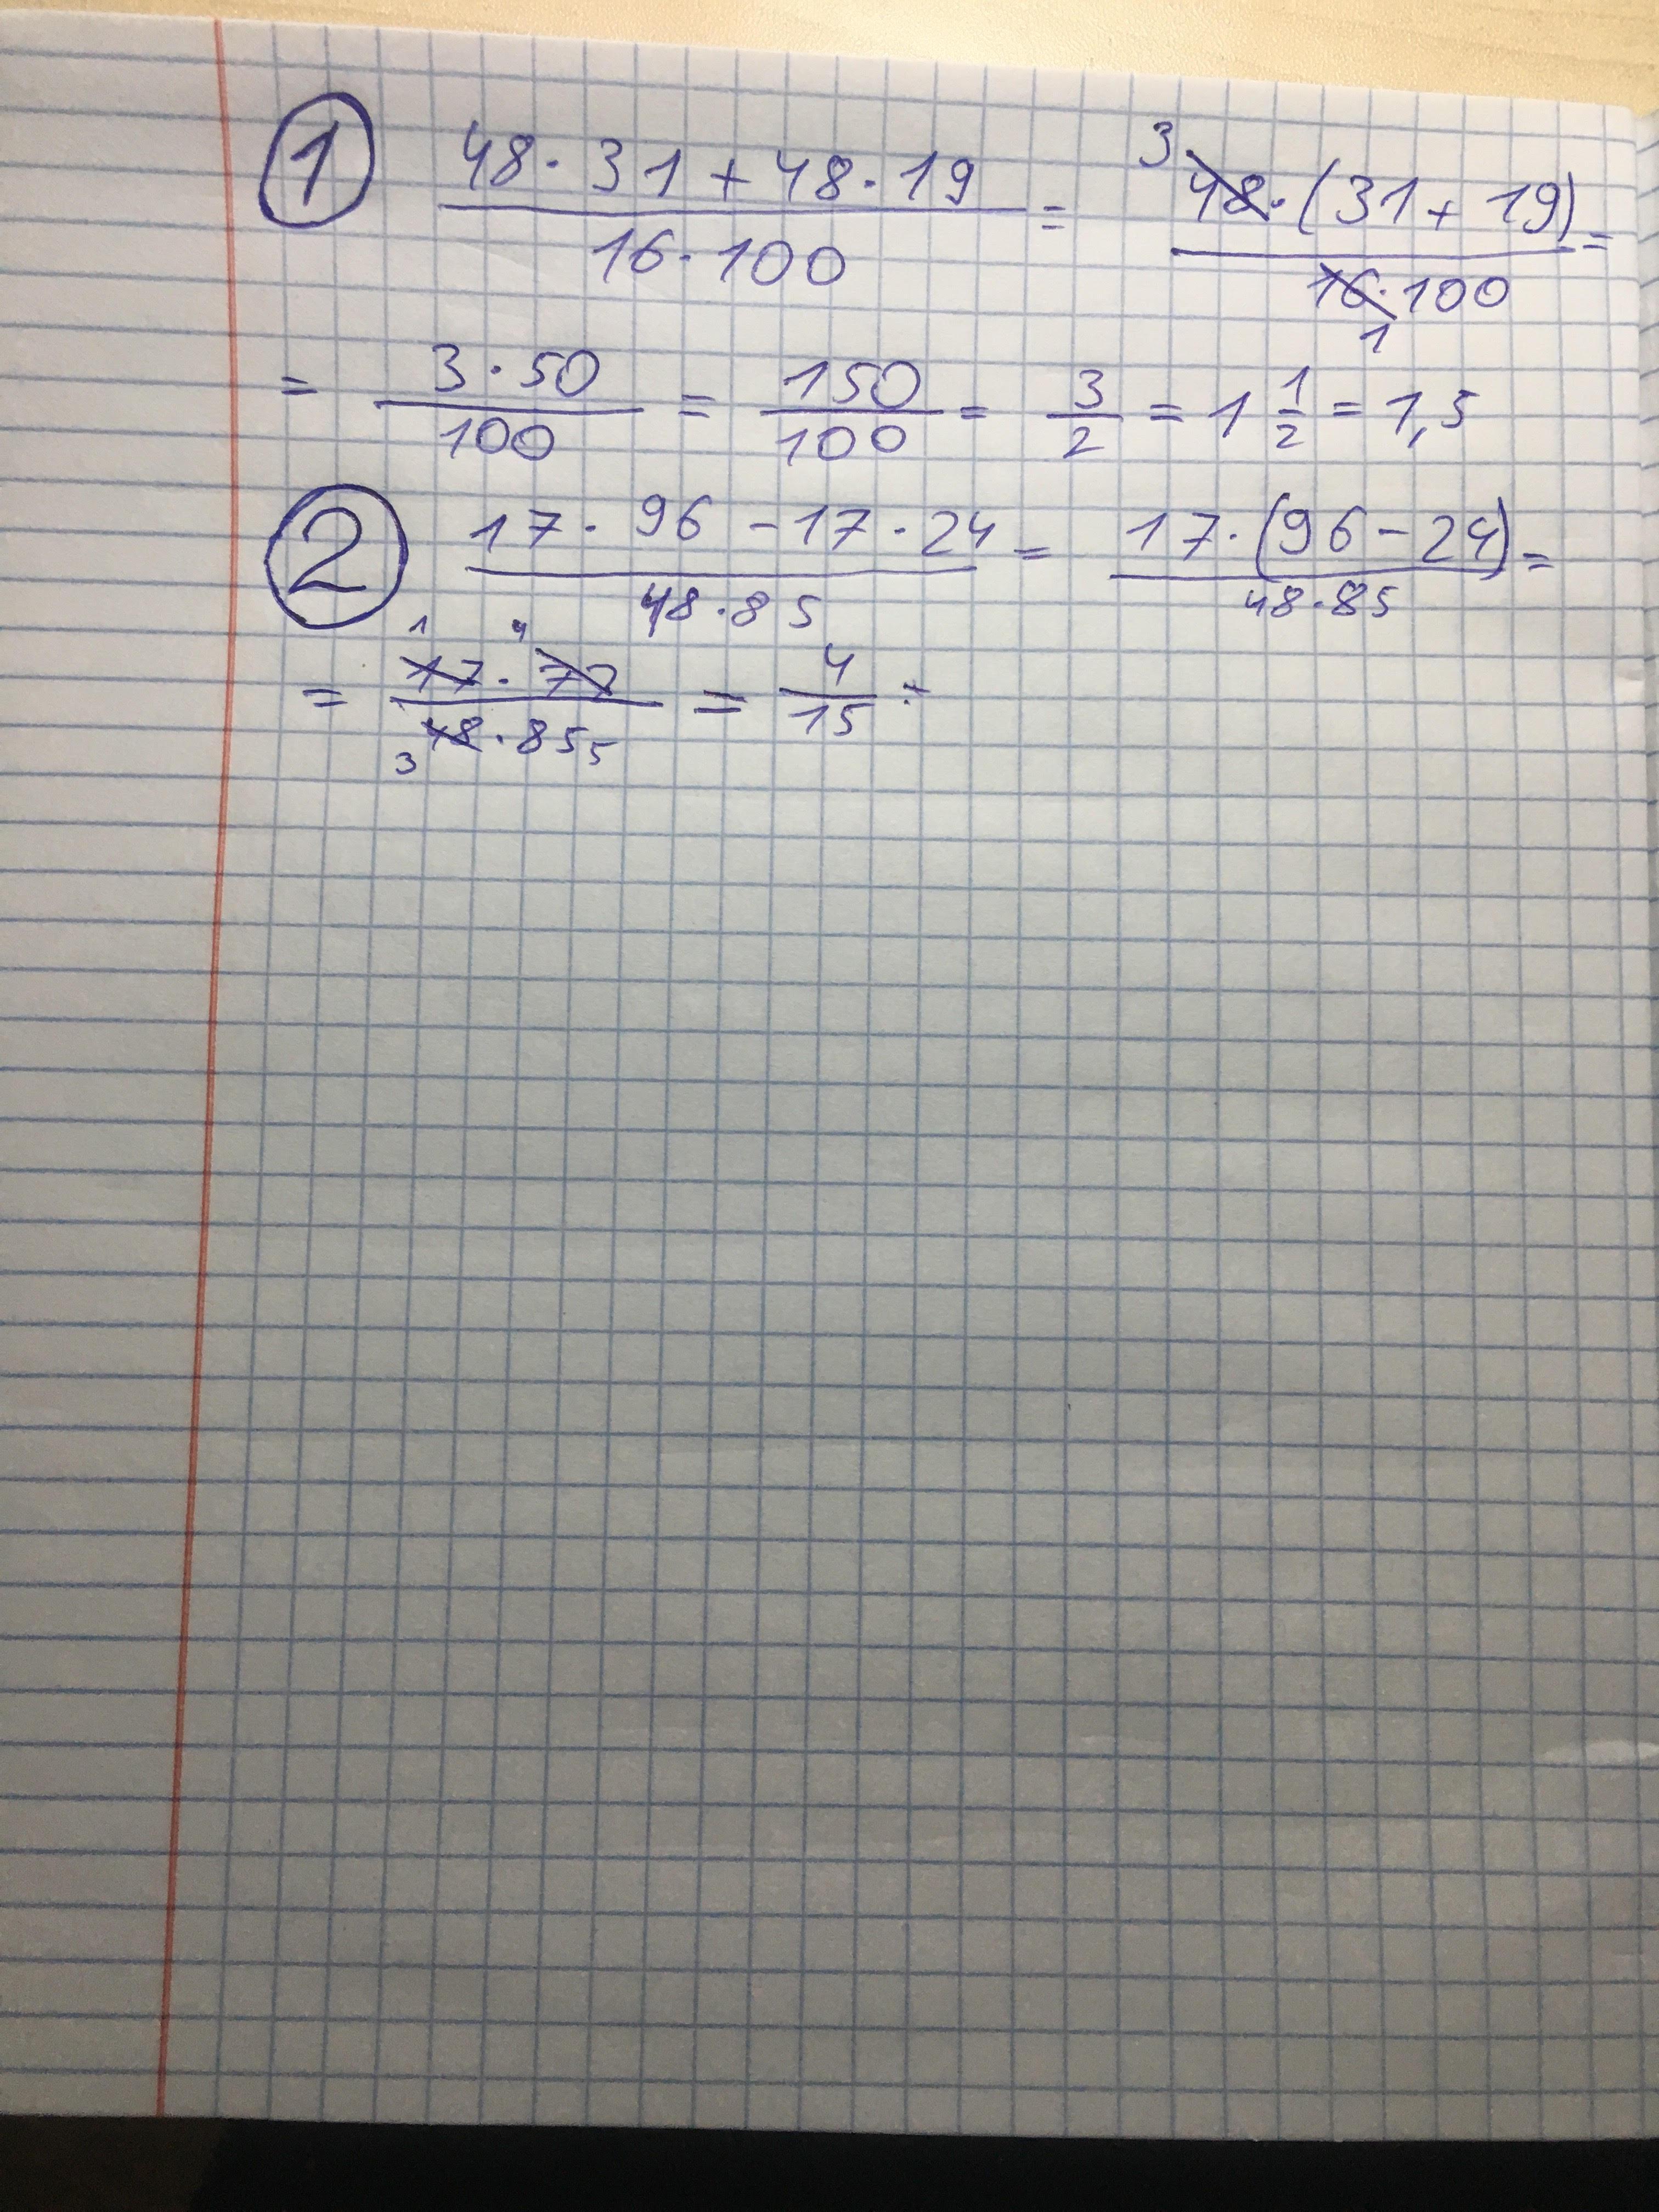 ① (48·31+48·19)/(16·100) = (3 48·(31+19))/(16·100 1) =
= (3·50)/100 = 150/100 = 3/2 = 1 1/2 = 1,5
② (17·96-17·24)/(48·85) = (17·(96-24))/(48·85) =
= (1 17· 4 72)/(3 48·85 5) = 4/15 =